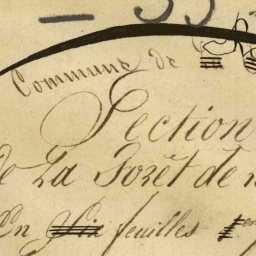 33
Commune de
Section
de La Forêt de
En ~~Six~~ feuilles 1re